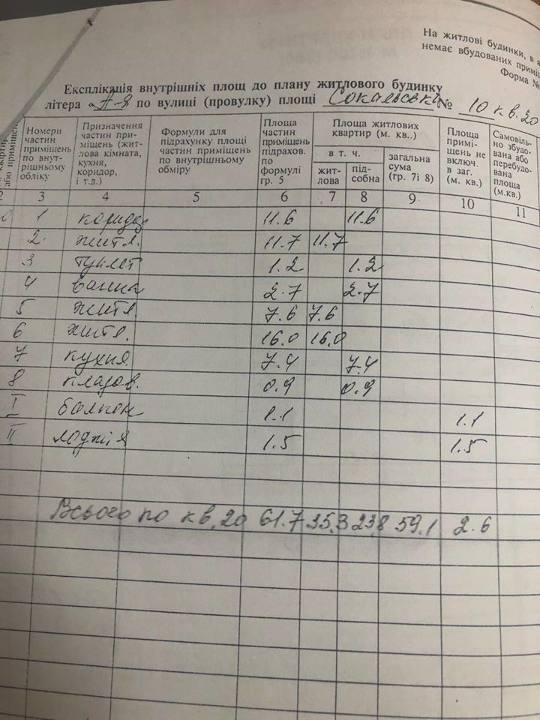 На житлові будинки, в
немає вбудованих приміщ
Форма №
Експлікація внутрішніх площ до плану житлового будинку
літера „А-9 по вулиці (провулку) площі Сокальська № 10 кв. 20
або приміщен
Номери частин приміщень по внутрішньому обліку
Призначення частин приміщень (житлова кімната, кухня, коридор, і т.л.)
Формули для підрахунку площі частин приміщень по внутрішньому обміру
Площа частин приміщень підрахов. по формулі гр. 5
Площа житлових квартир (м. кв..)
в т. ч.
житлова
підсобна
загальна сума (гр. 7і 8)
Площа приміщень не включ. в заг. (м. кв.)
Самовільно збудована або перебудована площа (м.кв.)
2 3 4 5 6 7 8 9 10 11
1 коридор 11.6 11.6
2. житл. 11.7 11.7
3 туалет 1.2 1.2
4 ванна 2.7 2.7
5 житл 7.6 7.6
6 житл. 16.0 16.0
7 кухня 7.4 7.4
8 кладов. 0.9 0.9
I балкон 1.1 1.1
II лоджія 1.5 1.5
Всього по кв. 20 61.7 35.3 23.8 59.1 2.6